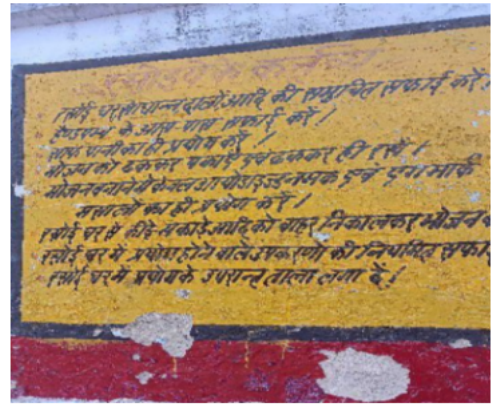 रसोई घर खाधान्न दालों आदि की समुचित सफाई करें।
हैण्डपम्प के आस पास सफाई करें।
साफ पानी का ही प्रयोग करें।
भोजन को ढककर पकायें एवं ढककर ही रखें।
भोजन बनाने में केवल आयोडाइज्ड नमक एवं एगमार्क
मसालों का ही प्रयोग करें।
रसोई घर से कीड़े मकोड़े आदि को बाहर निकालकर भोजन
रसोई घर में प्रयोग होने वाले उपकरणों की नियमित सफाई
रसोई घर में प्रयोग के उपरान्त ताला लगा दें।